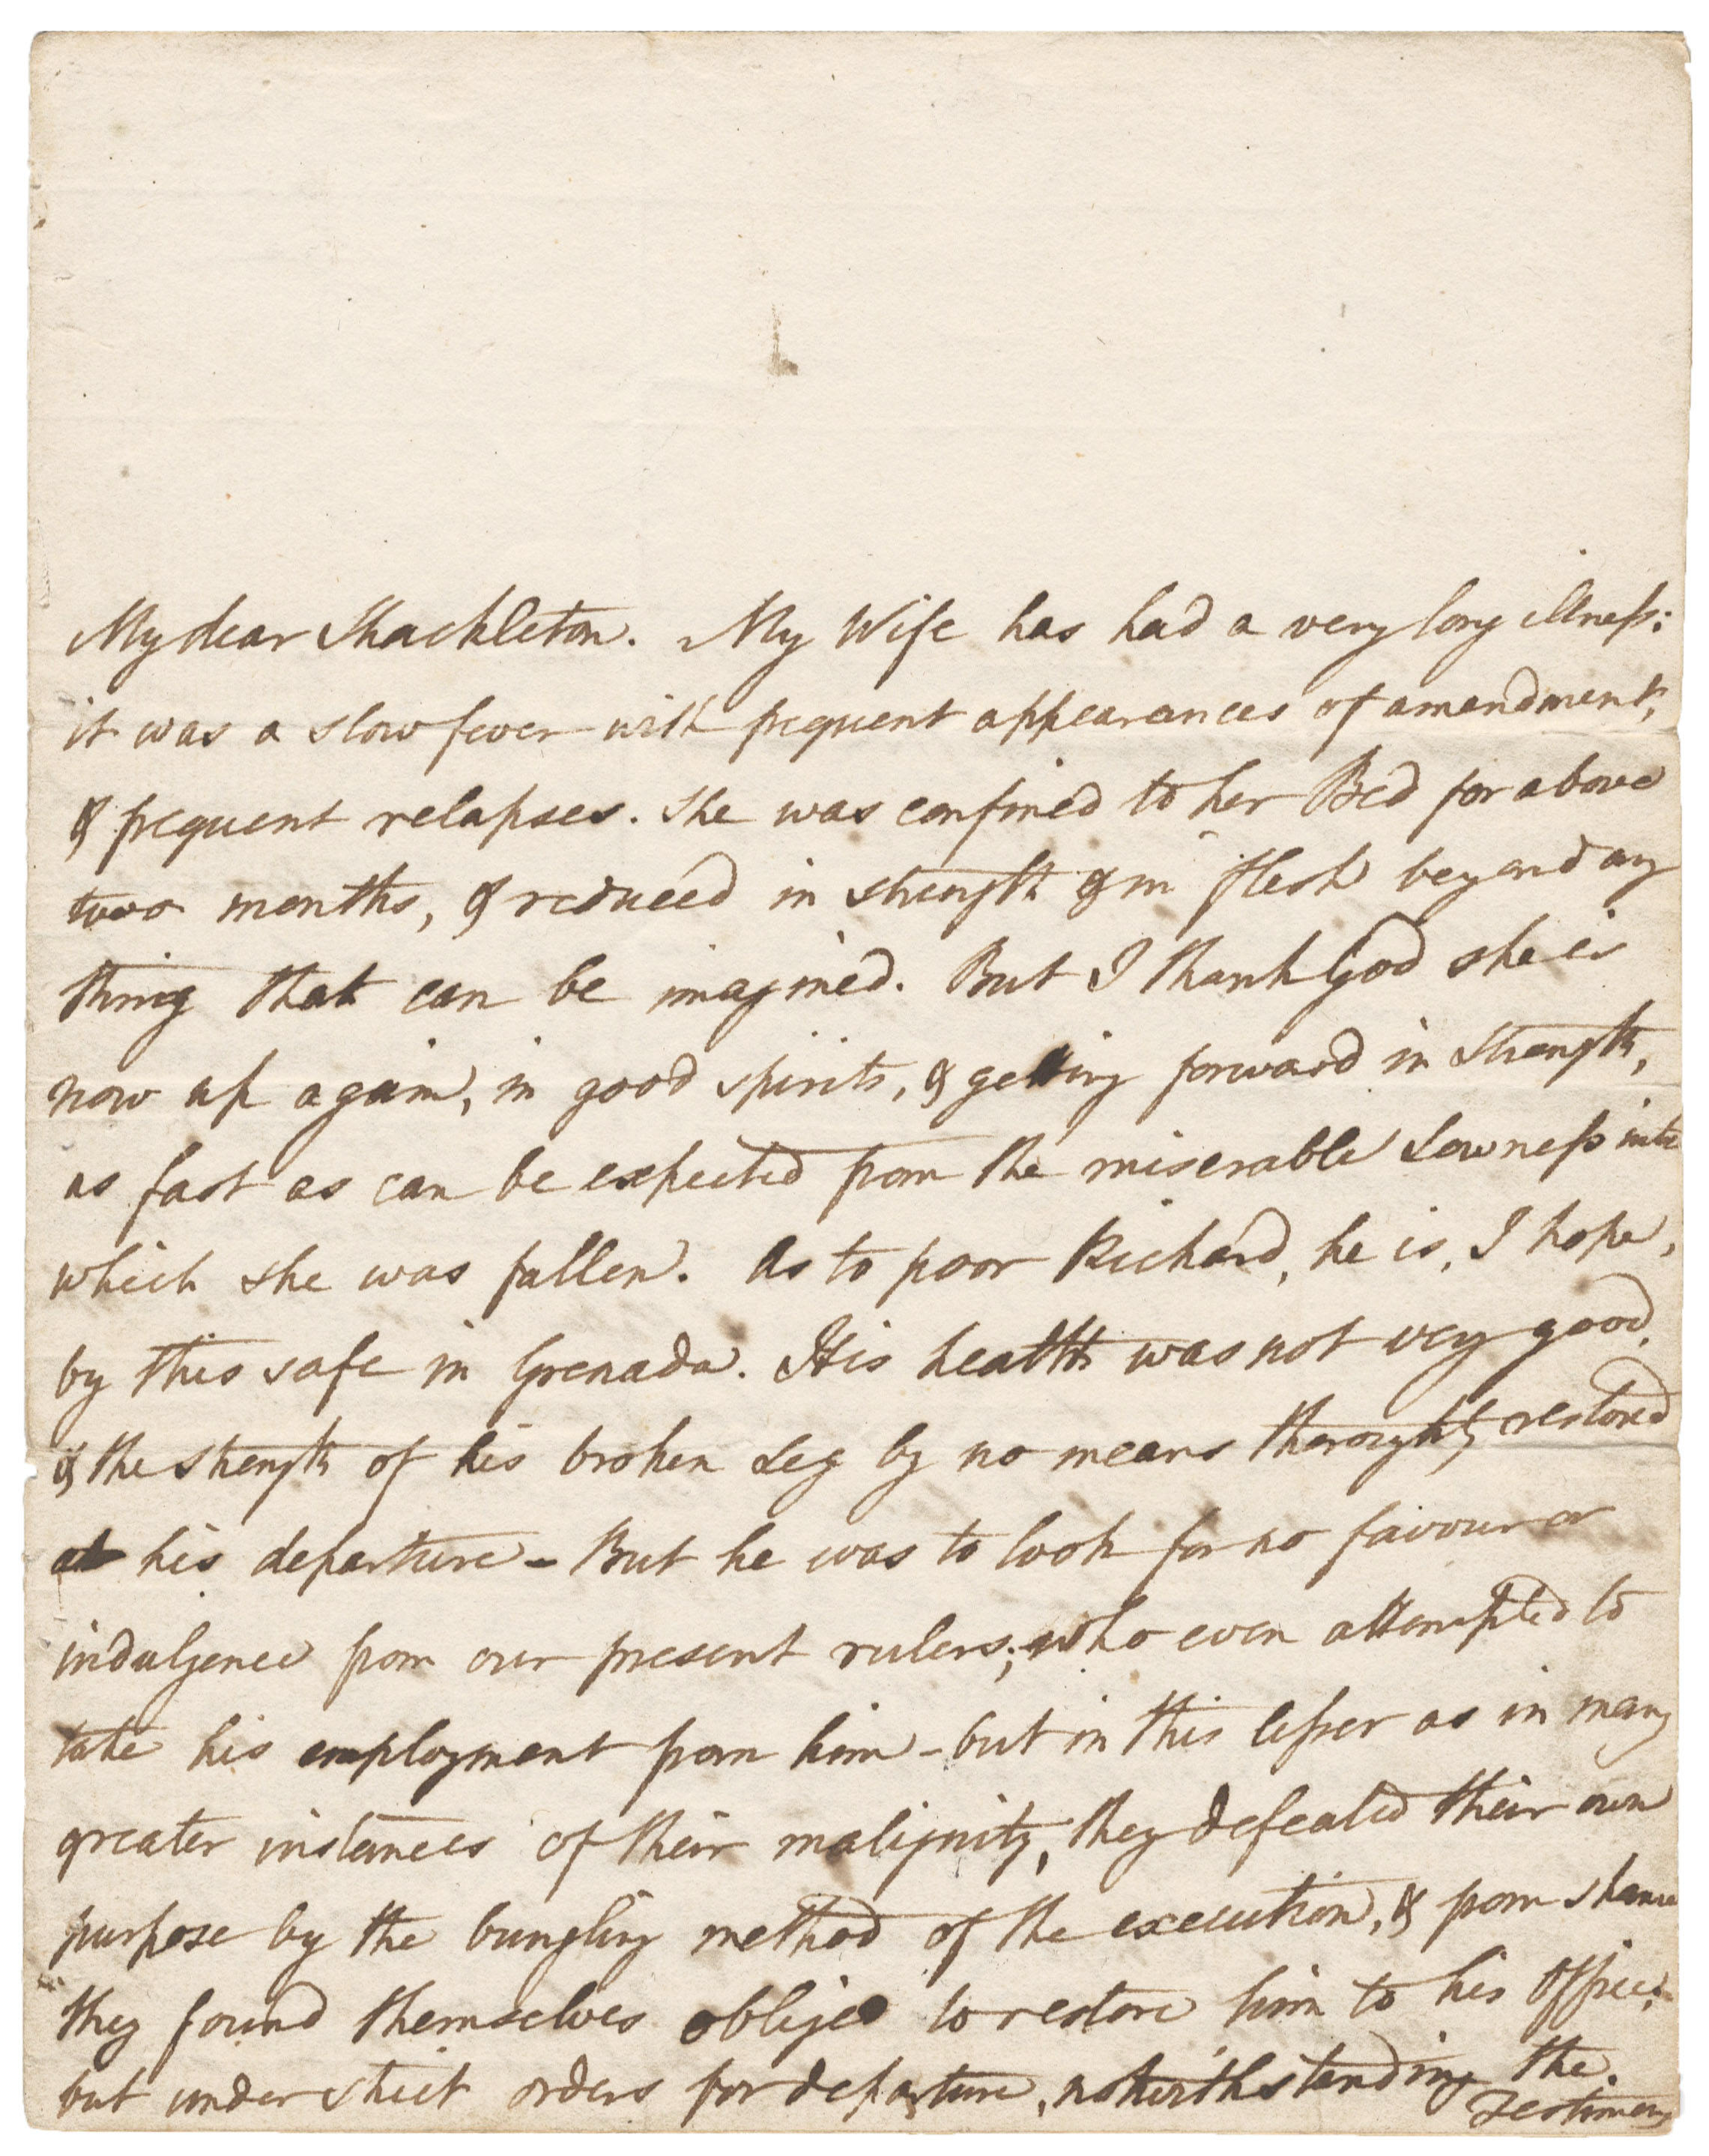 My dear Shackleton. My Wife has had a very long illness:
it was a slow fever with frequent appearances of amendment,
& frequent relapses. She was confined to her Bed for above
two months, & reduced in strength & in flesh beyond any
thing that can be imagined. But I thank God she is
now up again, in good spirits, & getting forward in Strength,
as fast as can be expected from the miserable Lowness into
which she was fallen. As to poor Richard, he is, I hope,
by this safe in Grenada. His health was not very good,
& the strength of his broken Leg by no means thoroughly restored
at his departure - But he was to look for no favour or
indulgence from our present rulers; who even attempted to
take his employment from him - but in this lesser as in many
greater instances of their malignity, they defeated their own
purpose by the bungling method of the execution, & from shame
they found themselves obliged to restore him to his Office;
but under strict orders for departure, notwithstanding the.
Testimony